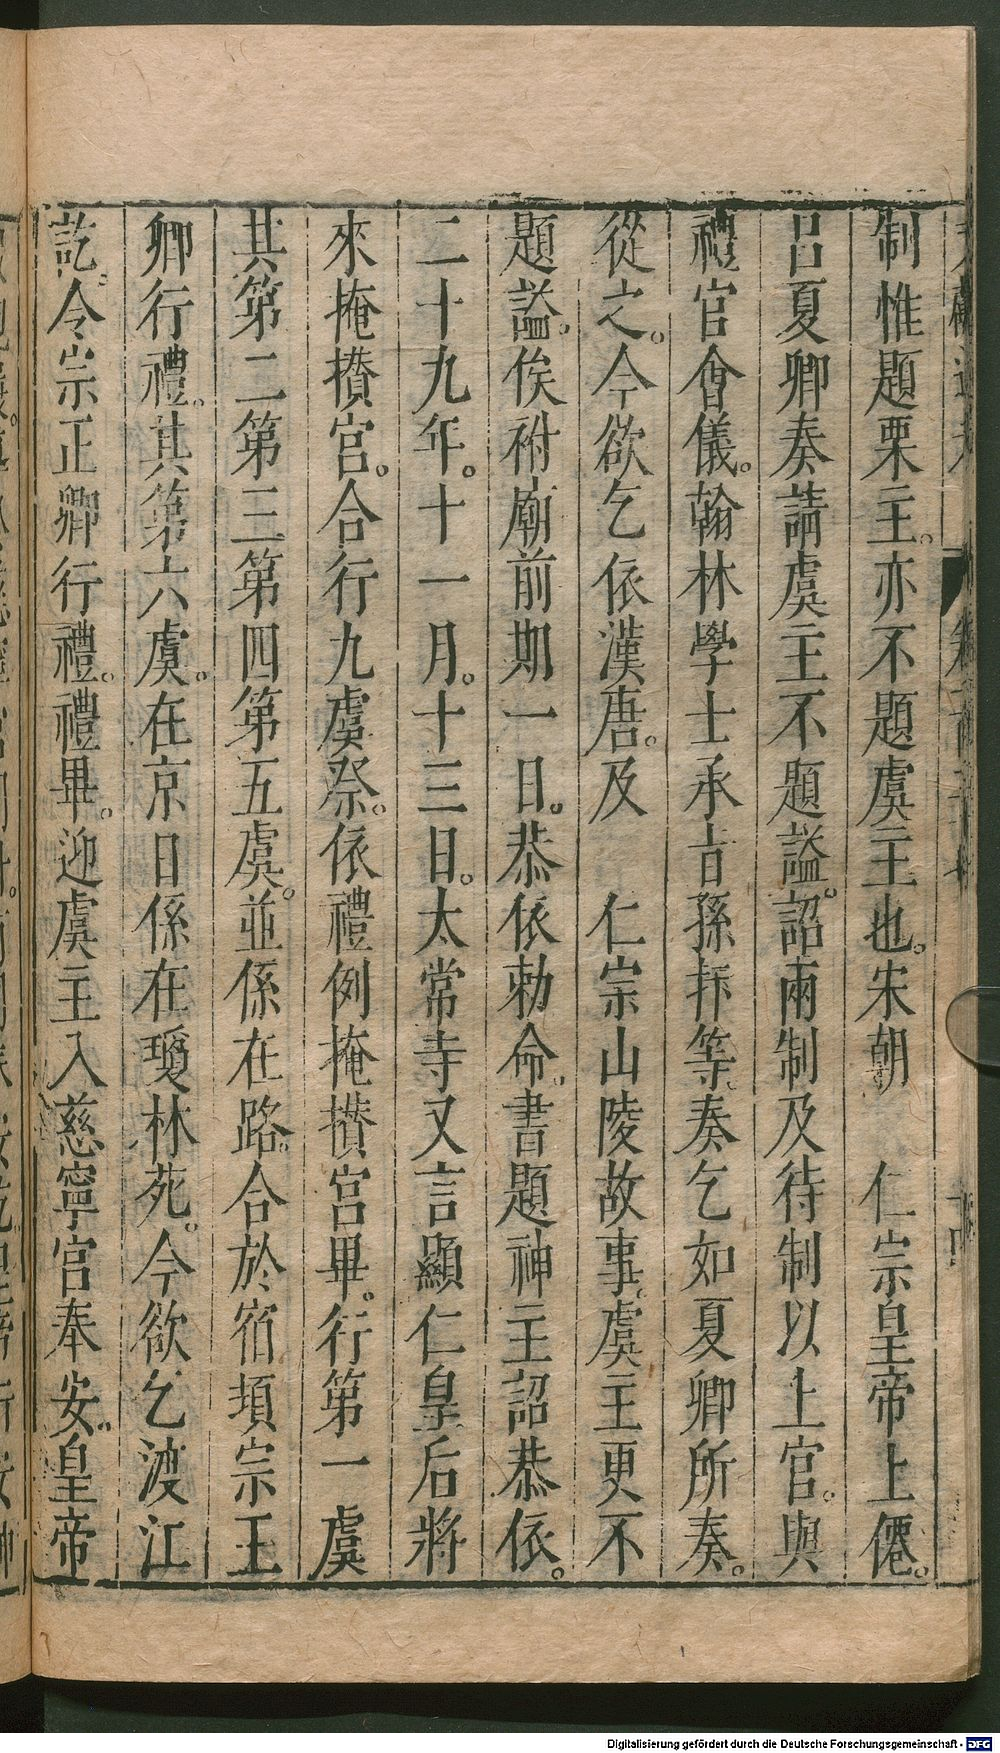 制惟題栗主。亦不題虞主也。宋朝　仁宗皇帝上僊。
呂夏卿奏請虞主不題謚。詔兩制及待制以上官。與
禮官會儀。翰林學士承旨孫抃等。奏乞如夏卿所奏。
從之。今欲乞依漢唐。及　仁宗山陵故事。虞主更不
題謚。俟祔廟前期一日。恭依勅命。書題神主詔恭依。
二十九年。十一月。十三日。太常寺又言顯仁皇后將
來掩攅宮。合行九虞祭。依禮例掩攅宮畢。行第一虞
其第二第三第四第五虞。並係在路。合於宿頓宗王
卿行禮。其第六虞。在京日係在瓊林苑。今欲乞渡江
訖。令宗正卿行禮。禮畢。迎虞主入慈寧宮奉安。皇帝
Digitalisierung gefördert durch die Deutsche Forschungsgemeinschaft - DFG